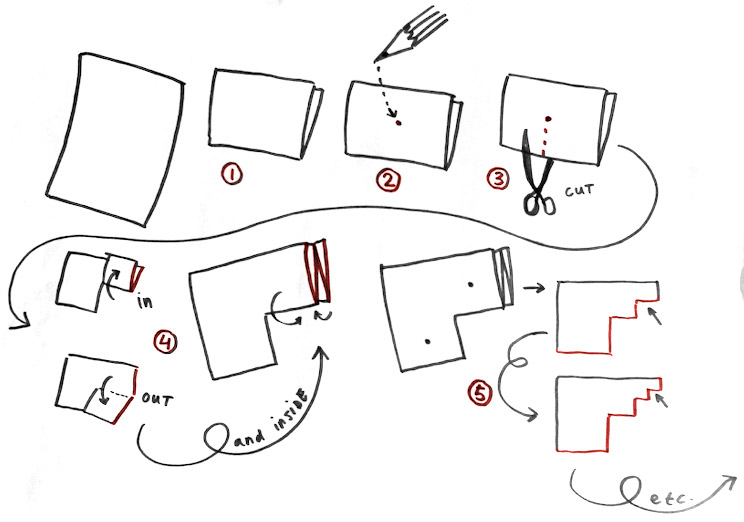 1
2
3
CUT
in
4
OUT
and INSIDE
5
etc.